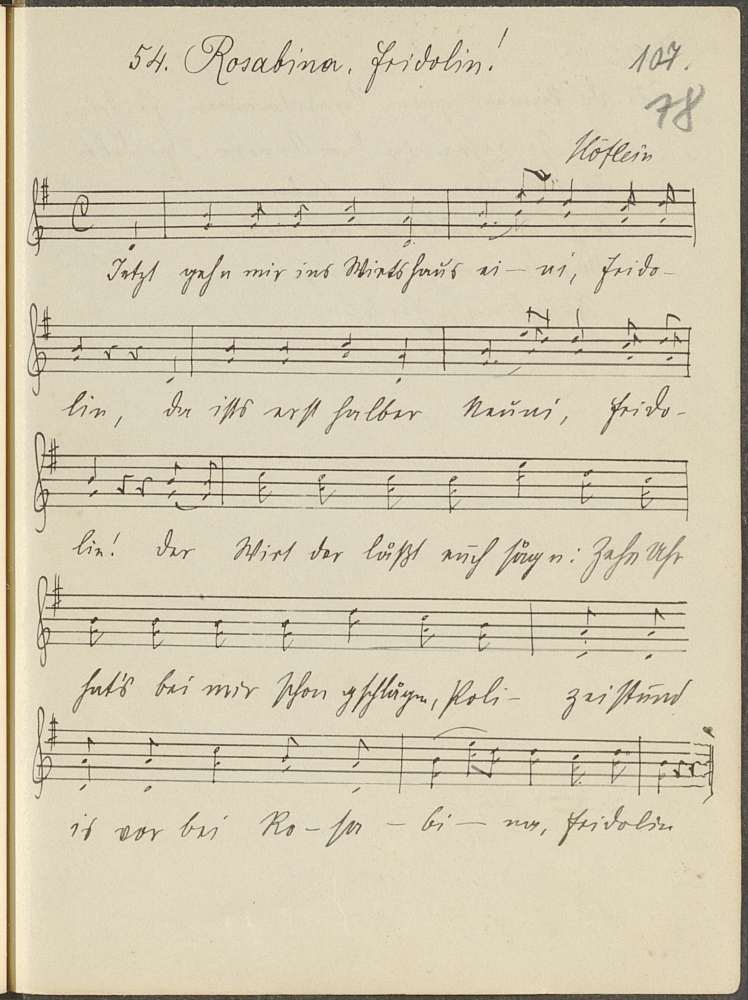 54. Rosabina, Fridolin!
107.
78
Höflein
Jetzt gehn mir ins Wirtshaus ei – ni, Frido –
lin, da ists erst halber Neuni, Frido –
lin! Der Wirt der läßt euch sågn: Zehn Uhr
hat's bei mir schon gschlågn, Poli – zeistund
is vor bei Ro – sa – bi – na, Fridolin